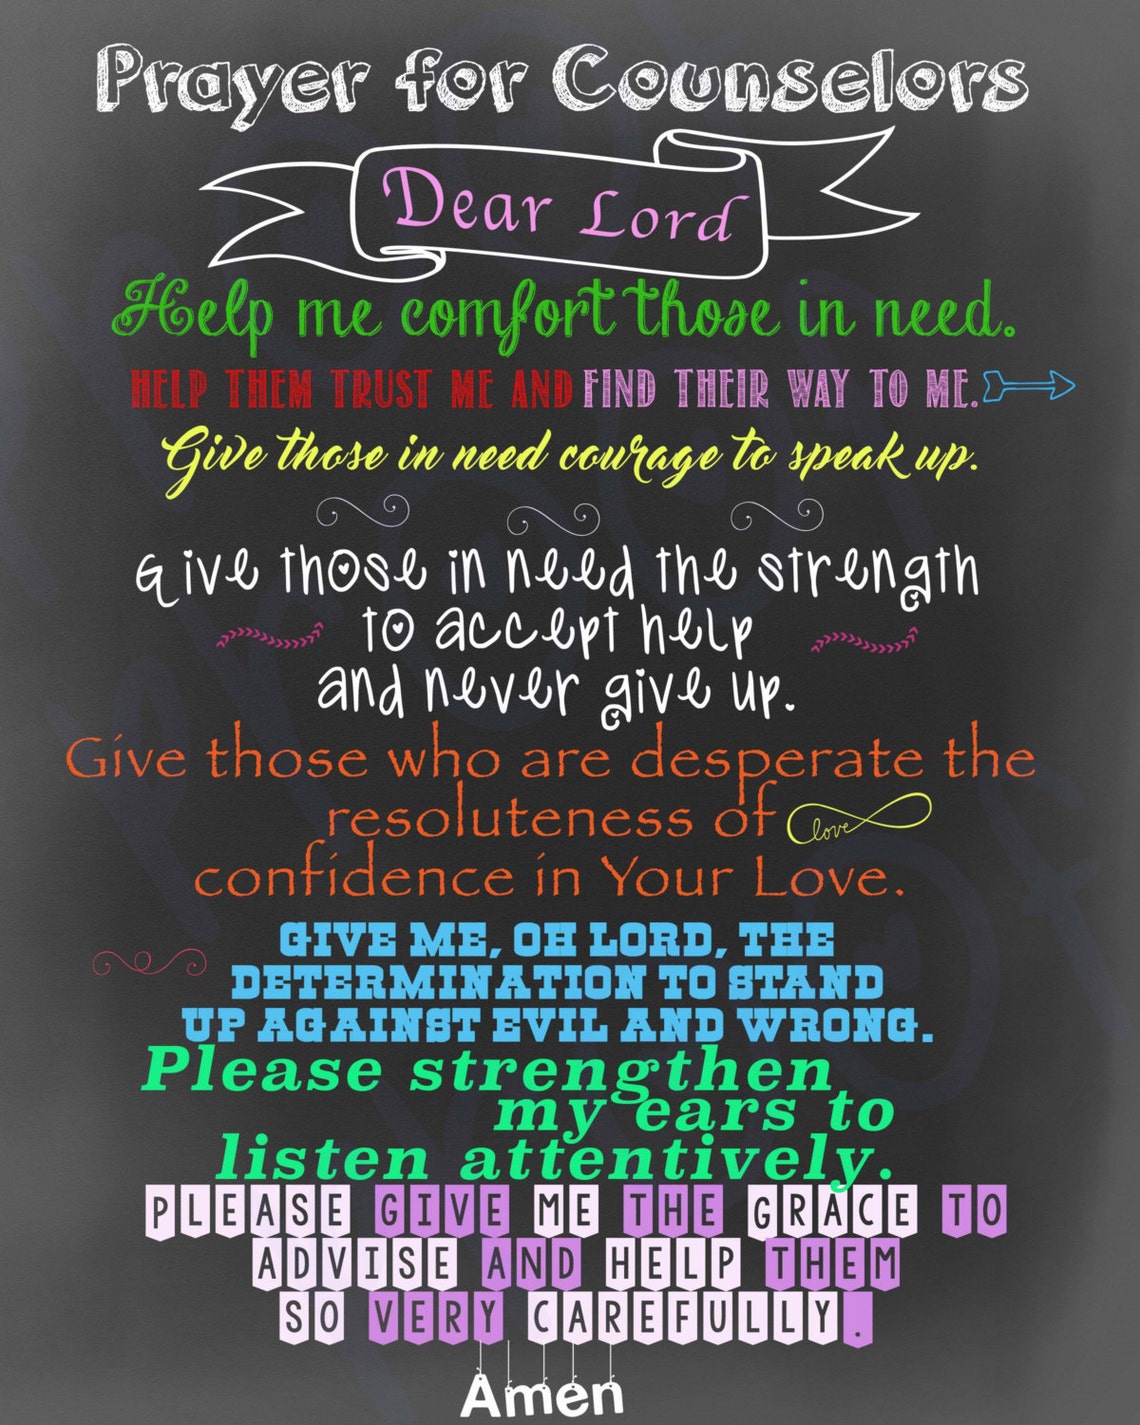 Prayer for Counselors
Dear Lord
Help me comfort those in need.
HELP THEM TRUST ME AND FIND THEIR WAY TO ME.
Give those in need courage to speak up.
Give those in need the strength
to accept help
and never give up.
Give those who are desperate the
resoluteness of
love
confidence in Your Love.
GIVE ME, OH LORD, THE
DETERMINATION TO STAND
UP AGAINST EVIL AND WRONG.
Please strengthen
my ears to
listen attentively.
PLEASE GIVE ME THE GRACE TO
ADVISE AND HELP THEM
SO VERY CAREFULLY.
Amen